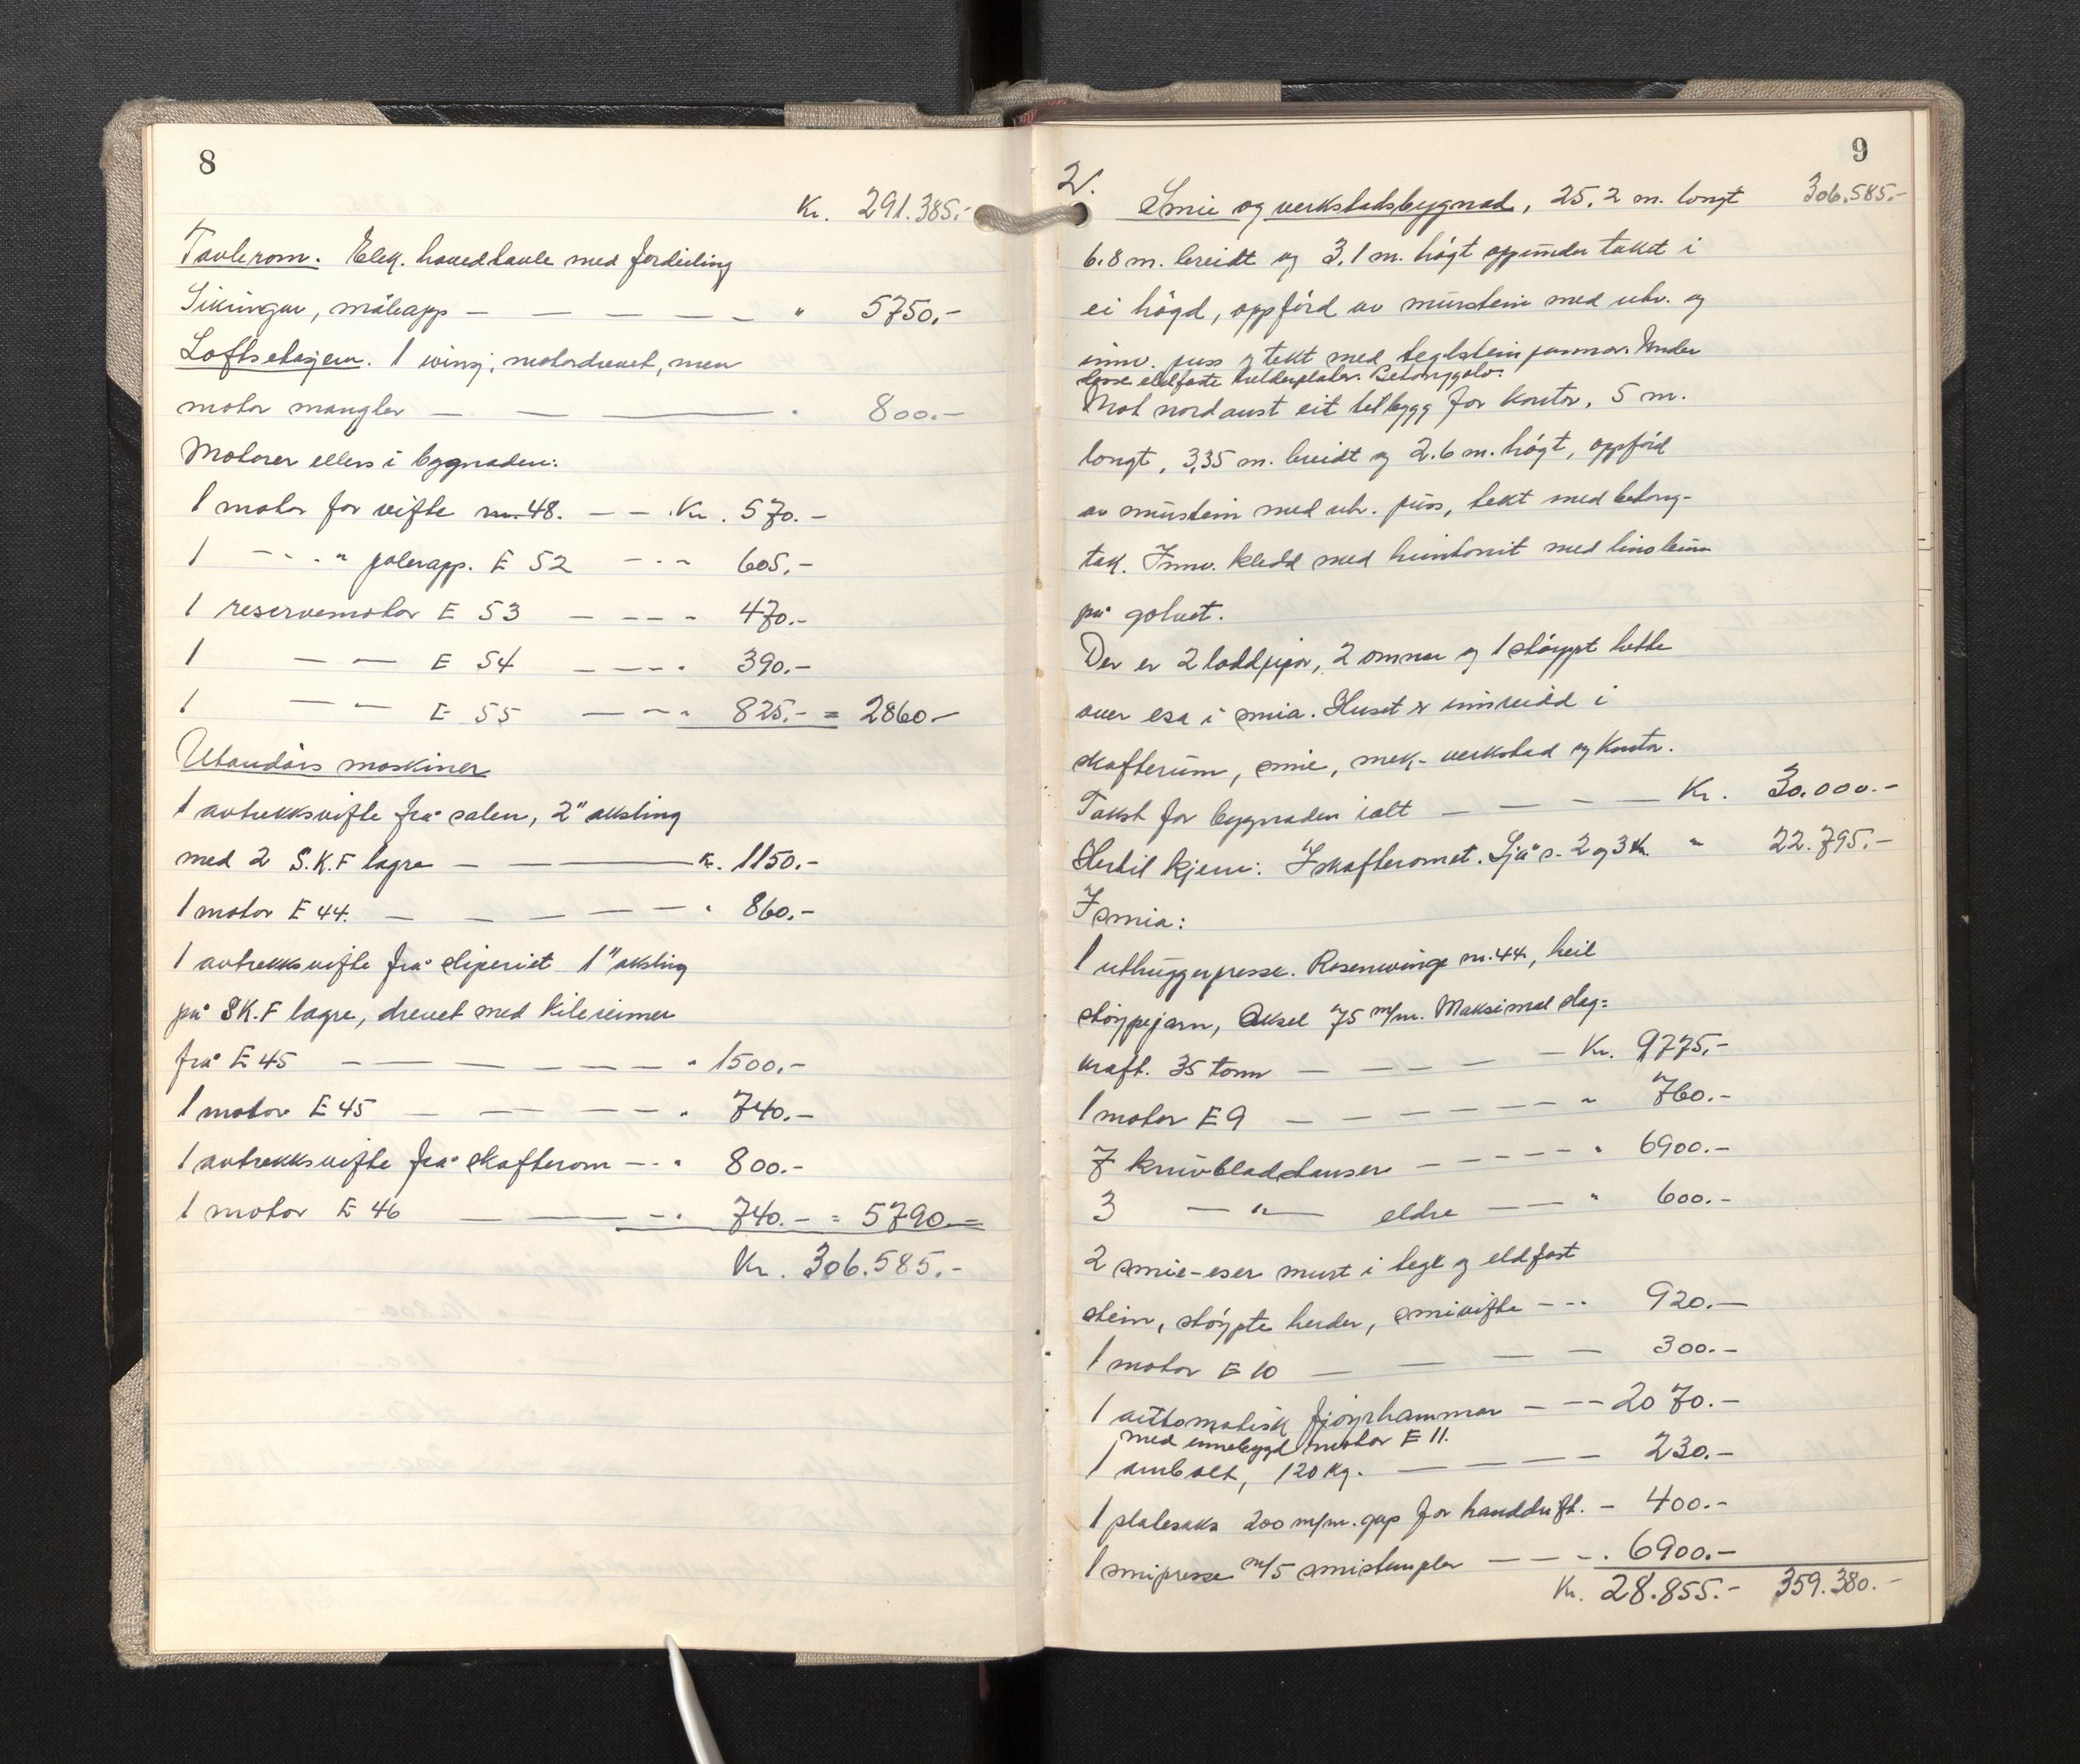 8
Kr. 291.385.-
Tavlerom. Elek. hovedtavle med fordeiling
Sikringar, måleapp — — — — — " 5750.-
Loftsetasjen. 1 vinsj, motordrevet, men
motor manglar — — — " 800.-
Motorer ellers i bygnaden:
1 motor for vifte nr. 48. — — Kr. 570.-
1 — " — " polerapp. E 52 — - - 605.-
1 reservemotor E 53 — — — - 470.-
1 — — E 54 — — — - 390.-
1 — — E 55 — — — " 825.- = 2860.-
Utandørs maskiner
1 avtrekksvifte frå salen, 2" aksling
med 2 S.K.F lagre — — K. 1150.-
1 motor E 44. — — — — — " 860.-
1 avtrekksvifte frå sliperiet 1" aksling
på SK.F lagre, drevet med kilereimer
frå E 45 — — — — — — " 1500.-
1 motor E 45 — — — — " 740.-
1 avtrekksvifte frå skafterom — - " 800.-
1 motor E 46 — — - " 740.- = 5790.-
Kr. 306.585.-
9
2. Smie og verkstadsbygnad, 25,2 m. longt 306.585.-
6.8 m. breidt og 3,1 m. høgt oppunder taket i
ei høgd, oppførd av murstein med utv. og
innv. puss og tekt med teglsteinpannor. Under
desse eldfaste huldreplater. Betonggolv.
Mot nordaust eit tilbygg for kontor, 5 m.
longt, 3,35 m. breidt og 2.6 m. høgt, oppførd
av murstein med utv. puss, tekt med betong-
tak. Innv. kledd med huntonit med linoleum
på golvet.
Der er 2 loddpipor, 2 omnar og 1 støypt hette
over esa i smia. Huset er innreidd i
skafterum, smie, mek. verkstad og kontor.
Takst for bygnaden ialt — — — — Kr. 30.000.-
Hertil kjem: I skafteromet. Sjå s. 2 og 3 Kr. " 22.795.-
I smia:
1 uthuggerpresse. Rosenvinge nr. 44, heil
støypejarn, Aksel 75 m/m. Maksimal slag=
kraft. 35 tonn — — — — — Kr. 9775.-
1 motor E 9 — — — — — — " 760.-
7 knivbladstanser — — — — " 6900.-
3 — " — eldre — — " 600.-
2 smie-eser murt i tegl og eldfast
stein, støypte herder, smivifte — - - 920.—
1 motor E 10 — — — — 300.-
1 automatisk fjøyrhammar — — — 2070.-
med innebygd motor E 11.
1 ambolt, 120 kg. — — — — 230.-
1 platesaks 200 m/m. gap for handdrift. — 400.-
1 smipresse m/5 smistempler — — — . 6900.-
Kr. 28.855.- 359.380.-